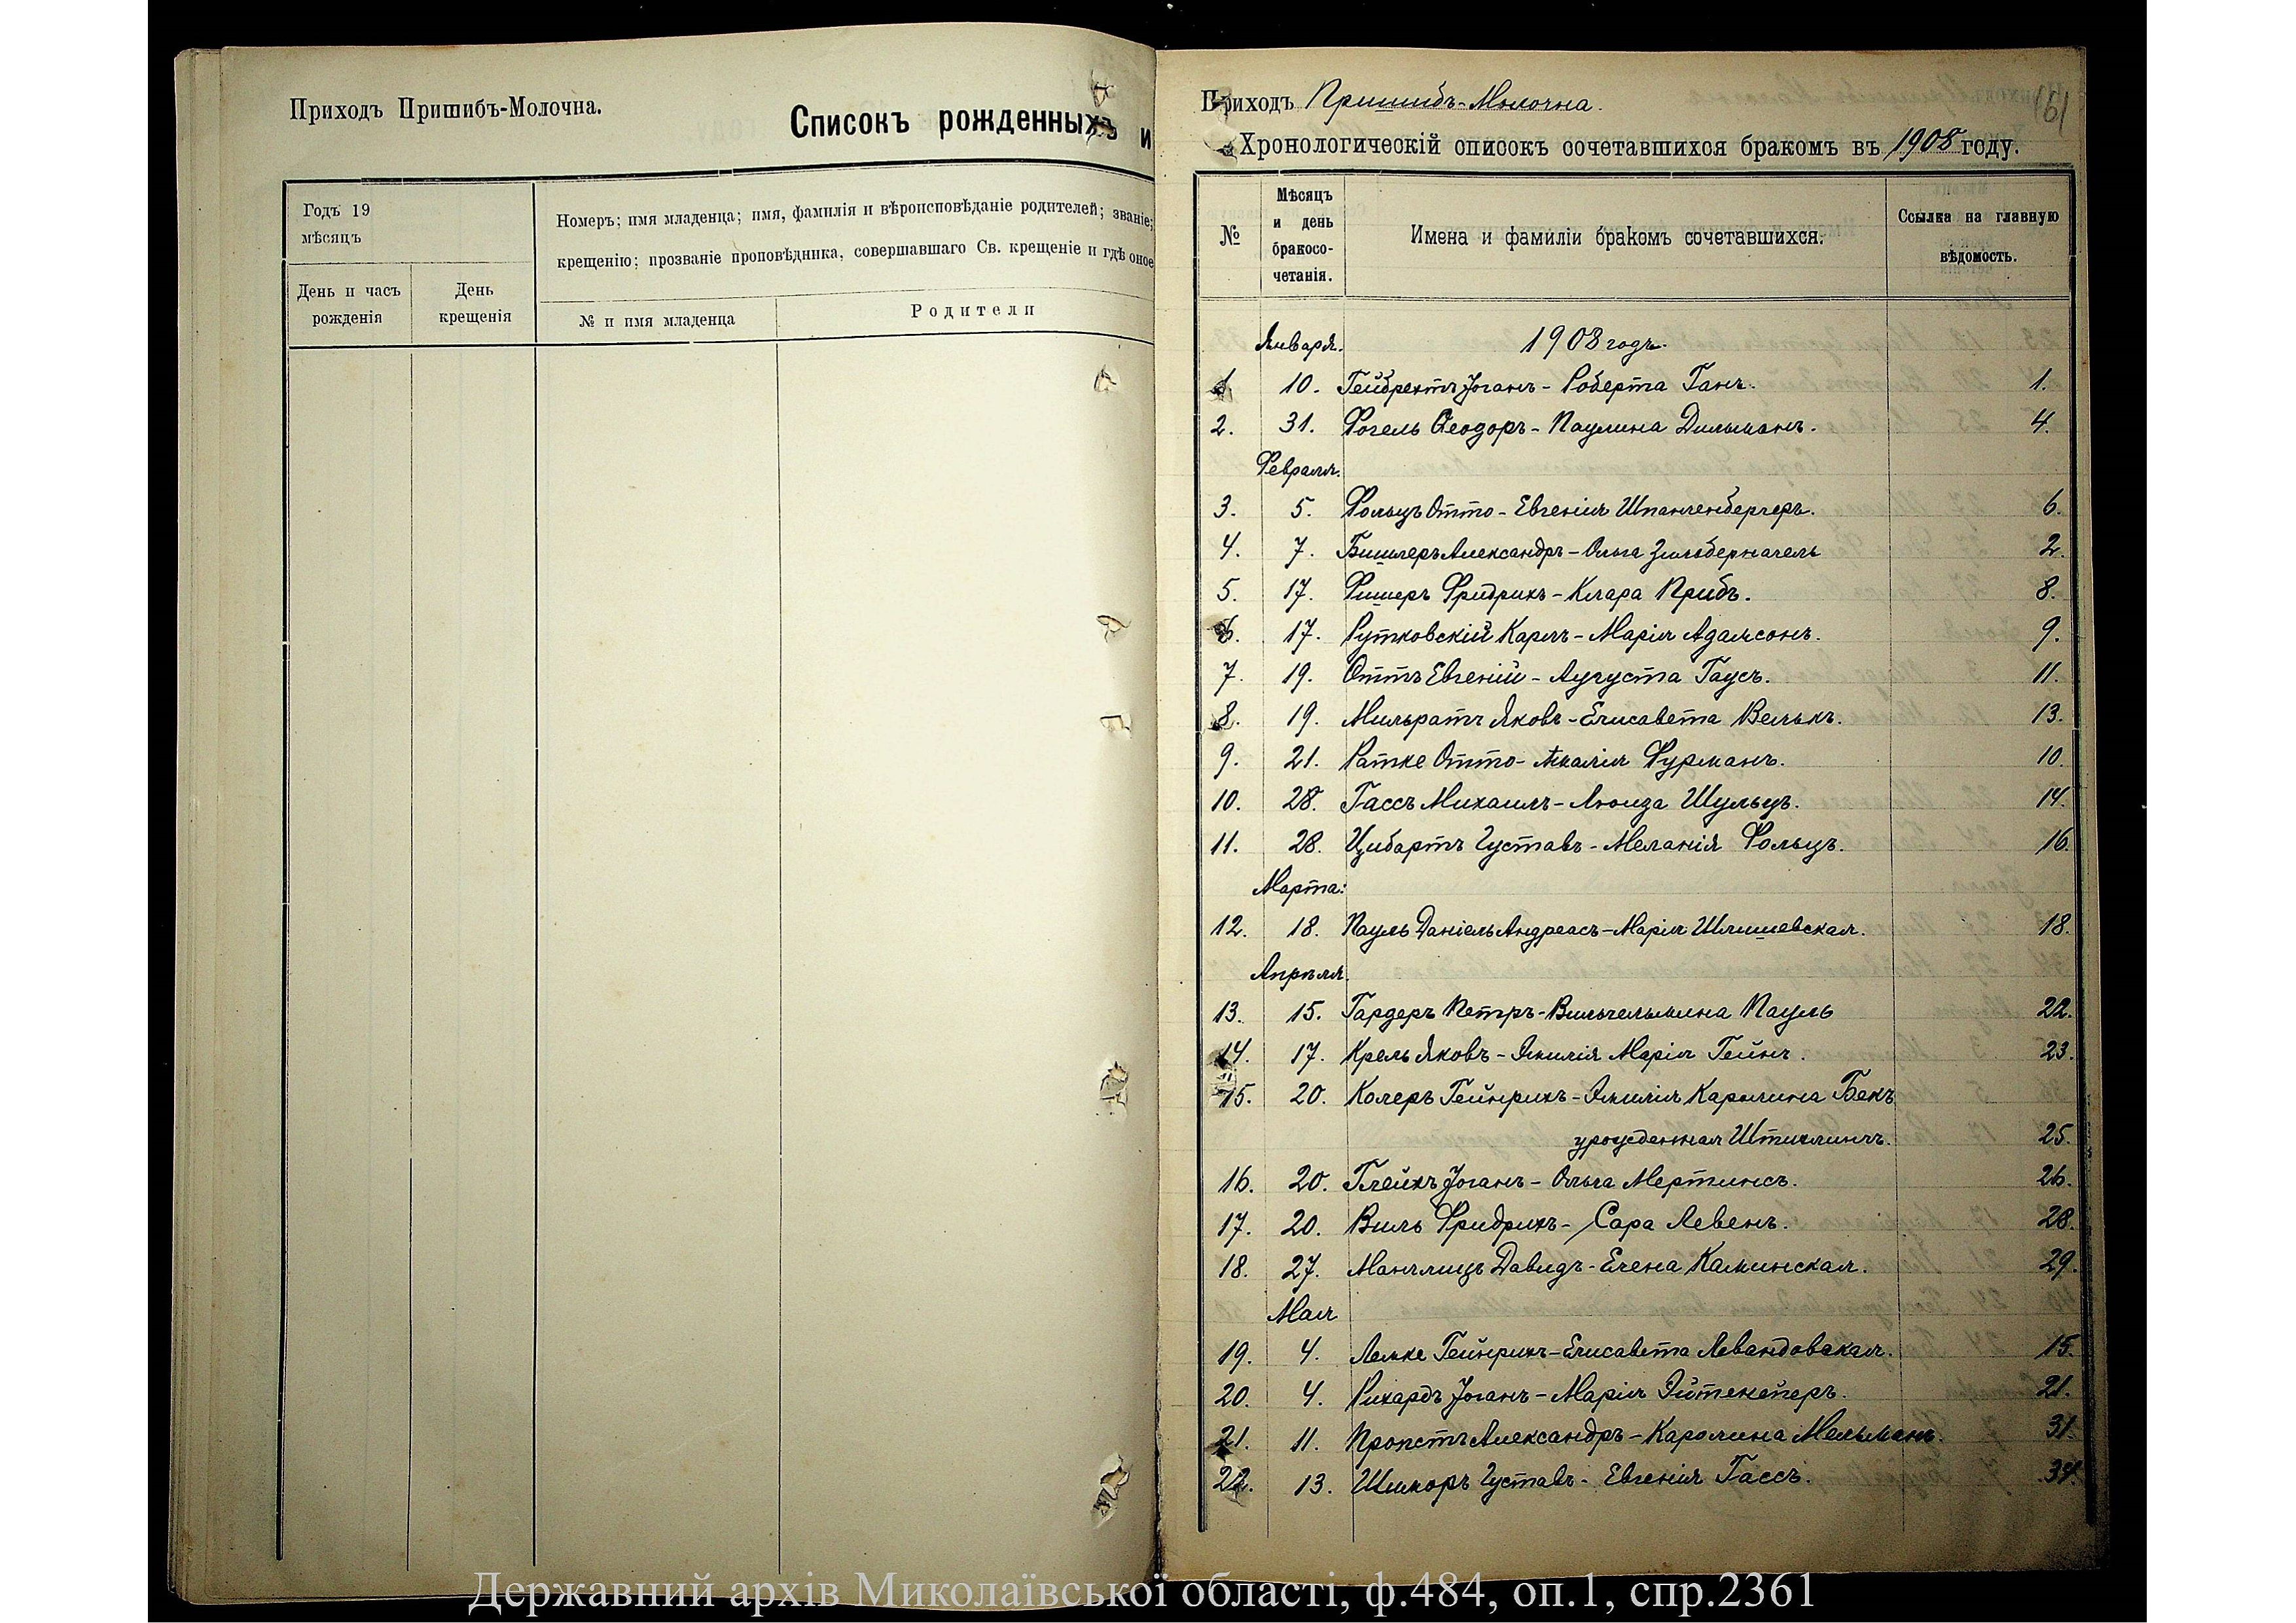 Приходъ Пришибъ-Молочна.
Списокъ рожденныхъ и
Годъ 19
мѣсяцъ
День и часъ рожденія
День крещенія
Номеръ; имя младенца; имя, фамилія и вѣроисповѣданіе родителей; званіе;
крещенію; прозваніе проповѣдника, совершавшаго Св. крещеніе и гдѣ оное
№ и имя младенца
Родители
Приходъ Пришибъ-Молочна.
161
Хронологическій списокъ сочетавшихся бракомъ въ 1908 году.
№
Мѣсяцъ и день бракосо-четанія.
Имена и фамиліи бракомъ сочетавшихся.
Ссылка на главную вѣдомость.
Января. 1908 годъ.
1. 10. Гейбрехтъ Іоганъ - Роберта Ганъ. 1.
2. 31. Фогель Ѳеодоръ - Паулина Дильманъ. 4.
Февраля.
3. 5. Фольцъ Отто - Евгенія Шпангенбергеръ. 6.
4. 7. Бишлеръ Александръ - Ольга Зильбернагель 2.
5. 17. Фишеръ Фридрихъ - Клара Прибъ. 8.
6. 17. Рутковскій Карлъ - Марія Адамсонъ. 9.
7. 19. Оттъ Евгеній - Аугуста Гаусъ. 11.
8. 19. Мильратъ Яковъ - Елисавета Велькъ. 13.
9. 21. Ратке Отто - Амалія Фурманъ. 10.
10. 28. Гассъ Михаилъ - Луиза Шульцъ. 14.
11. 28. Цибартъ Густавъ - Меланія Фольцъ. 16.
Марта:
12. 18. Пауль Даніель Андреасъ - Марія Шлишевская. 18.
Апрѣля.
13. 15. Гардеръ Петръ - Вильгельмина Пауль 22.
14. 17. Крель Яковъ - Эмилія Марія Гейнъ. 23.
15. 20. Колеръ Гейнрихъ - Эмилія Каролина Бекъ
урожденная Штихлингъ. 25.
16. 20. Блейхъ Іоганъ - Ольга Мертинсъ. 26.
17. 20. Виль Фридрихъ - Сара Левенъ. 28.
18. 27. Манглицъ Давидъ - Елена Каминская. 29.
Мая
19. 4. Лемке Гейнрихъ - Елисавета Левандовская. 15.
20. 4. Рихардъ Іоганъ - Марія 21.
21. 11. Пропстъ Александръ - Каролина Мельманъ. 31.
22. 13. Шимхоръ Густавъ - Евгенія Гассъ. 34.
Державний архів Миколаївської області, ф.484, оп.1, спр.2361